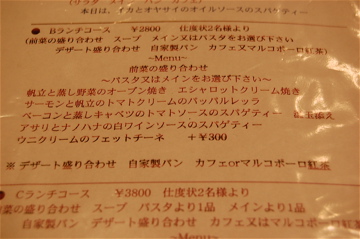 本日は、イカとオヤサイのオイルソースのスパゲティー
● Bランチコース ¥2800 仕度状2名様より
(前菜の盛り合わせ スープ メイン又はパスタをお選び下さい
デザート盛り合わせ 自家製パン カフェ又はマルコポーロ紅茶)
~Menu~
前菜の盛り合わせ
~パスタ又はメインをお選び下さい~
帆立と蒸し野菜のオーブン焼き エシャロットクリーム焼き
サーモンと帆立のトマトクリームのパッパルレッラ
ベーコンと蒸しキャベツのトマトソースのスパゲティー
アサリとナノハナの白ワインソースのスパゲティー
ウニクリームのフェットチーネ +¥300
※ デザート盛り合わせ 自家製パン カフェorマルコポーロ紅茶
● Cランチコース ¥3800 仕度状2名様より
前菜の盛り合わせ スープ パスタより1品 メインより1品
自家製パン デザート盛り合わせ カフェ又はマルコポーロ紅
~Menu~